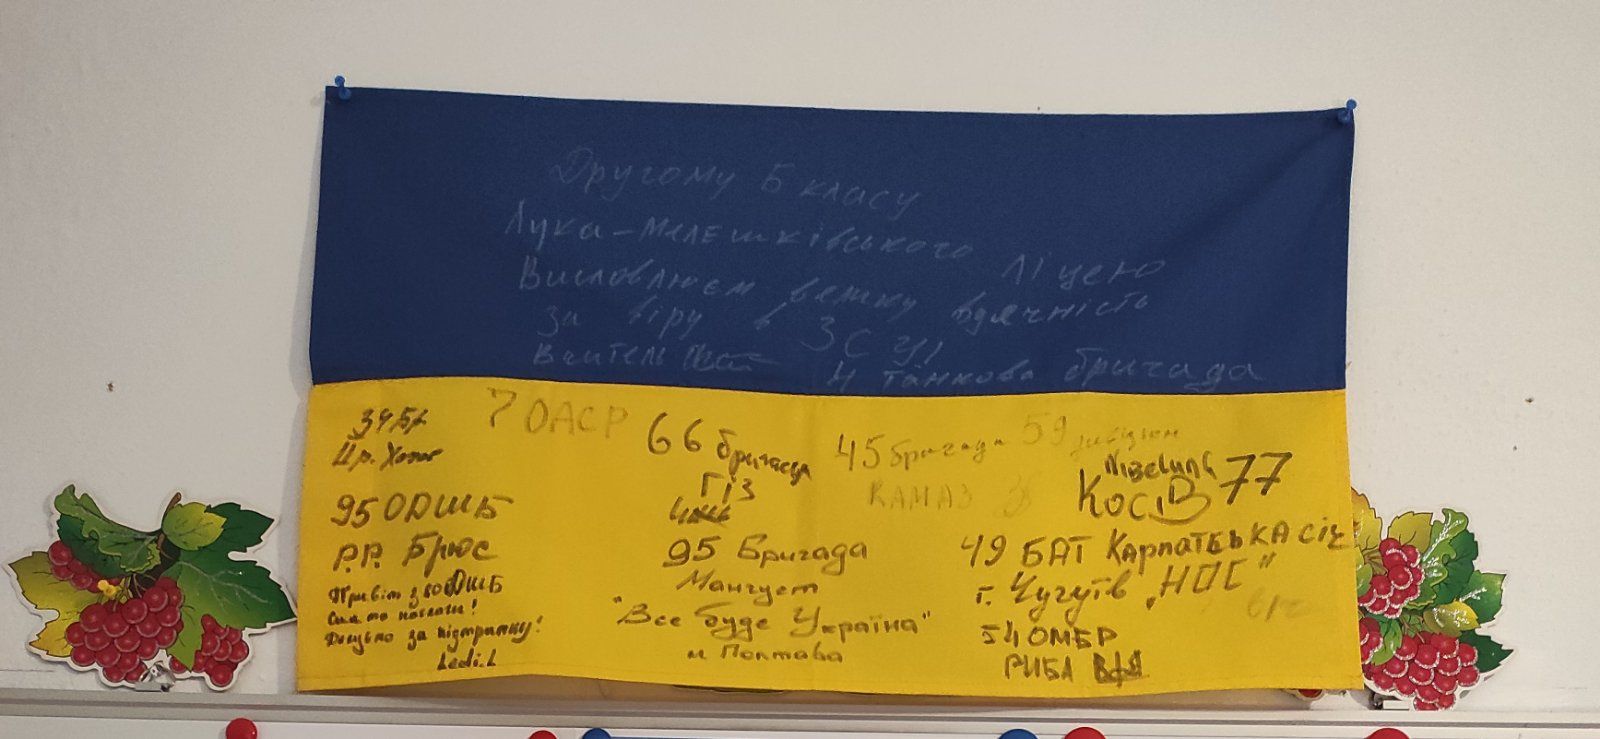 Другому Б класу
Лука-Мелешківського ліцею
Висловлюєм велику вдячність
за віру в ЗСУ!
Вчитель
4 танкова бригада
7 ОАСР
66 бригада
ГІЗ
45 бригада 59 дивізіон
КАМАЗ
Nibelung
КОСІВ 77
95 ОДШБ
Р.Р. Брюс
Привіт з 80 ОДШБ
Дякуємо за підтримку!
Ledi.L
95 Бригада
Мангуст
"Все буде Україна"
м Полтава
49 БАТ КАРПАТСЬКА СІЧ
г. Чугуїв „НПС"
54 ОМБР
РИБА